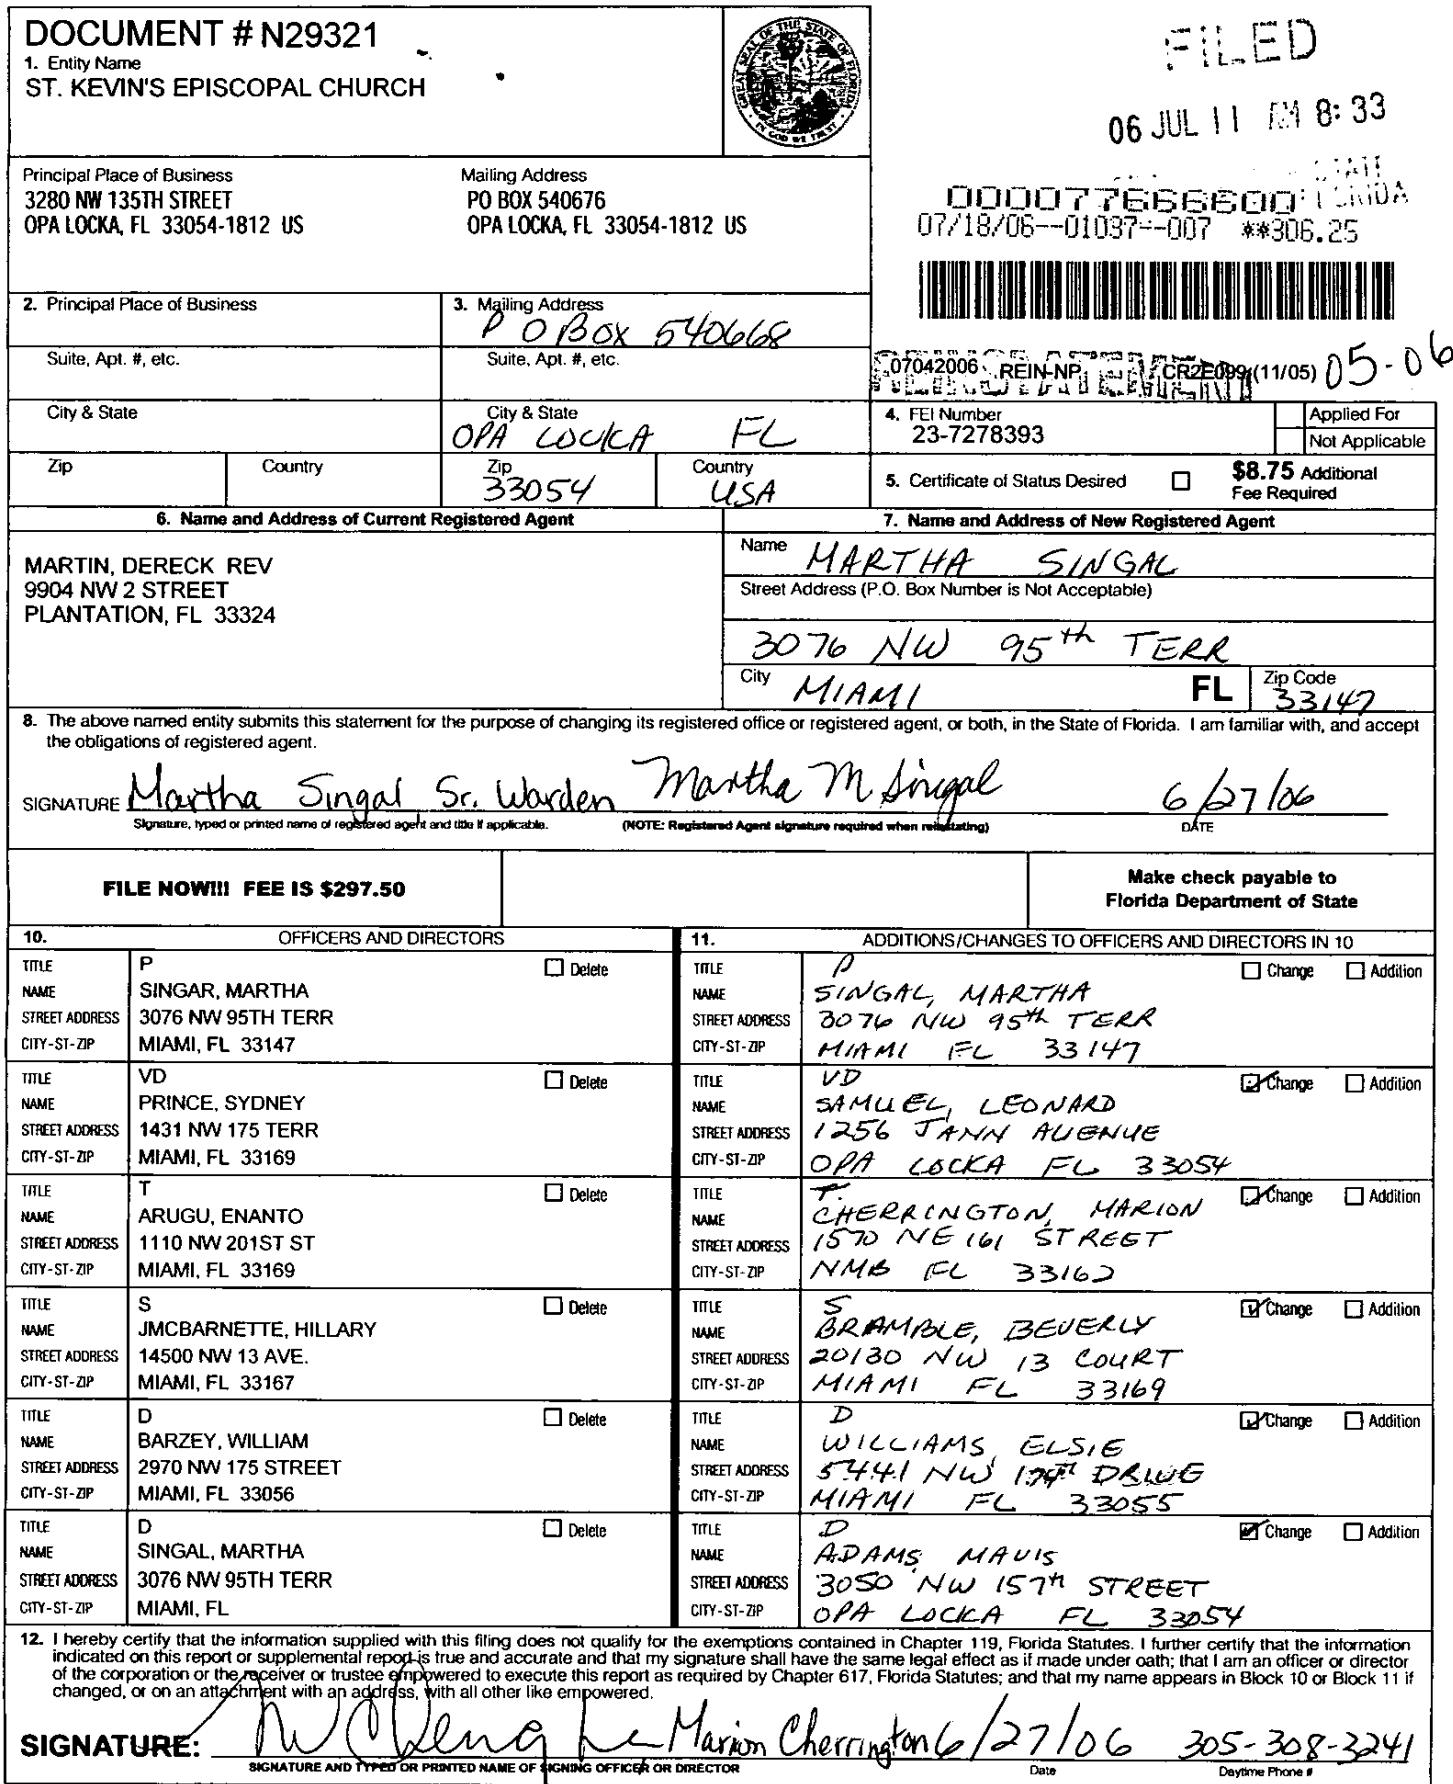 DOCUMENT # N29321
1. Entity Name
ST. KEVIN'S EPISCOPAL CHURCH
GREAT SEAL OF THE STATE OF FLORIDA
IN GOD WE TRUST
FILED
06 JUL 11 AM 8:33
STATE
FLORIDA
000077666600
07/18/06--01037--007 **306.25
Principal Place of Business
3280 NW 135TH STREET
OPA LOCKA, FL 33054-1812 US
Mailing Address
PO BOX 540676
OPA LOCKA, FL 33054-1812 US
2. Principal Place of Business
3. Mailing Address
P O BOX 540668
Suite, Apt. #, etc.
Suite, Apt. #, etc.
REINSTATEMENT
07042006 REIN-NP CR2E099 (11/05) 05-06
City & State
City & State
OPA LOCKA FL
4. FEI Number
23-7278393
Applied For
Not Applicable
Zip
Country
Zip
33054
Country
USA
5. Certificate of Status Desired
$8.75 Additional
Fee Required
6. Name and Address of Current Registered Agent
MARTIN, DERECK REV
9904 NW 2 STREET
PLANTATION, FL 33324
7. Name and Address of New Registered Agent
Name MARTHA SINGAL
Street Address (P.O. Box Number is Not Acceptable)
3076 NW 95th TERR
City MIAMI FL Zip Code 33147
8. The above named entity submits this statement for the purpose of changing its registered office or registered agent, or both, in the State of Florida. I am familiar with, and accept
the obligations of registered agent.
SIGNATURE Martha Singal Sr. Warden Martha M Singal 6/27/06
Signature, typed or printed name of registered agent and title if applicable. (NOTE: Registered Agent signature required when reinstating) DATE
FILE NOW!!! FEE IS $297.50
Make check payable to
Florida Department of State
10. OFFICERS AND DIRECTORS
TITLE P Delete
NAME SINGAR, MARTHA
STREET ADDRESS 3076 NW 95TH TERR
CITY-ST-ZIP MIAMI, FL 33147
TITLE VD Delete
NAME PRINCE, SYDNEY
STREET ADDRESS 1431 NW 175 TERR
CITY-ST-ZIP MIAMI, FL 33169
TITLE T Delete
NAME ARUGU, ENANTO
STREET ADDRESS 1110 NW 201ST ST
CITY-ST-ZIP MIAMI, FL 33169
TITLE S Delete
NAME JMCBARNETTE, HILLARY
STREET ADDRESS 14500 NW 13 AVE.
CITY-ST-ZIP MIAMI, FL 33167
TITLE D Delete
NAME BARZEY, WILLIAM
STREET ADDRESS 2970 NW 175 STREET
CITY-ST-ZIP MIAMI, FL 33056
TITLE D Delete
NAME SINGAL, MARTHA
STREET ADDRESS 3076 NW 95TH TERR
CITY-ST-ZIP MIAMI, FL
11. ADDITIONS/CHANGES TO OFFICERS AND DIRECTORS IN 10
TITLE P Change Addition
NAME SINGAL, MARTHA
STREET ADDRESS 3076 NW 95th TERR
CITY-ST-ZIP MIAMI FL 33147
TITLE VD Change Addition
NAME SAMUEL, LEONARD
STREET ADDRESS 1256 JANN AVENUE
CITY-ST-ZIP OPA LOCKA FL 33054
TITLE T. Change Addition
NAME CHERRINGTON, MARION
STREET ADDRESS 1570 NE 161 STREET
CITY-ST-ZIP NMB FL 33162
TITLE S Change Addition
NAME BRAMBLE, BEVERLY
STREET ADDRESS 20130 NW 13 COURT
CITY-ST-ZIP MIAMI FL 33169
TITLE D Change Addition
NAME WILLIAMS, ELSIE
STREET ADDRESS 5441 NW 174th DRIVE
CITY-ST-ZIP MIAMI FL 33055
TITLE D Change Addition
NAME ADAMS, MAVIS
STREET ADDRESS 3050 NW 157th STREET
CITY-ST-ZIP OPA LOCKA FL 33054
12. I hereby certify that the information supplied with this filing does not qualify for the exemptions contained in Chapter 119, Florida Statutes. I further certify that the information
indicated on this report or supplemental report is true and accurate and that my signature shall have the same legal effect as if made under oath; that I am an officer or director
of the corporation or the receiver or trustee empowered to execute this report as required by Chapter 617, Florida Statutes; and that my name appears in Block 10 or Block 11 if
changed, or on an attachment with an address, with all other like empowered.
SIGNATURE: Marion Cherrington 6/27/06 305-308-3241
SIGNATURE AND TYPED OR PRINTED NAME OF SIGNING OFFICER OR DIRECTOR Date Daytime Phone #